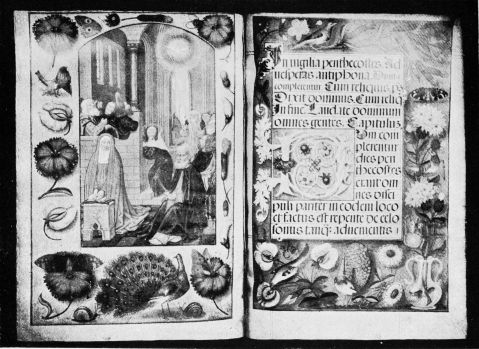 In vigilia penthecostes ad
vesperas antiphona. Dum
complerentur. Cum reliquis ps
Dixit dominus. Cum reliq
In fine Laudate dominum
omnes gentes. Capitulus
Dum com
plerentur
dies pen
thecostes
erant om
nes disci
puli pariter in eodem loco
et factus est repente de celo
sonus tanq̃ advenientis